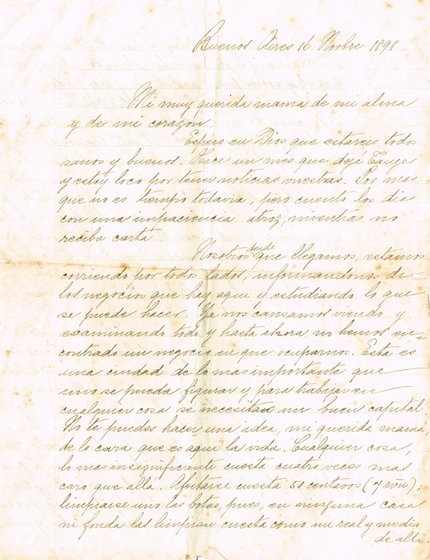 Buenos Aires 16 Novbre 1898
Mi muy querida mamá de mi alma
y de mi corazon
Espero en Dios que estareis todos
sanos y buenos. Hace un mes que dejé
y estoy loco por tener noticias vuestras. Por mas
que no es tiempo todavía, pero cuento los dias
con una impaciencia atroz, mientras no
reciba carta
Nosotros desde que llegamos, estamos
corriendo por todos lados, informandonos de
los negocios que hay aqui y estudiando lo que
se puede hacer. Ya nos cansamos viendo y
examinando todo y hasta ahora no hemos en-
contrado un negocio en que ocuparnos. Esta es
una ciudad de lo mas importante que
uno se pueda figurar y para trabajar en
cualquier cosa se necesita un buen capital
No te puedes hacer una idea, mi querida mamá,
de lo cara que es aqui la vida. Cualquier cosa,
lo mas insignificante cuesta cuatro veces mas
caro que allá. Afeitarse cuesta 50 centavos
limpiarse uno las botas, pues, en ninguna casa
ni fonda las limpian cuesta como un real y medio
de allá